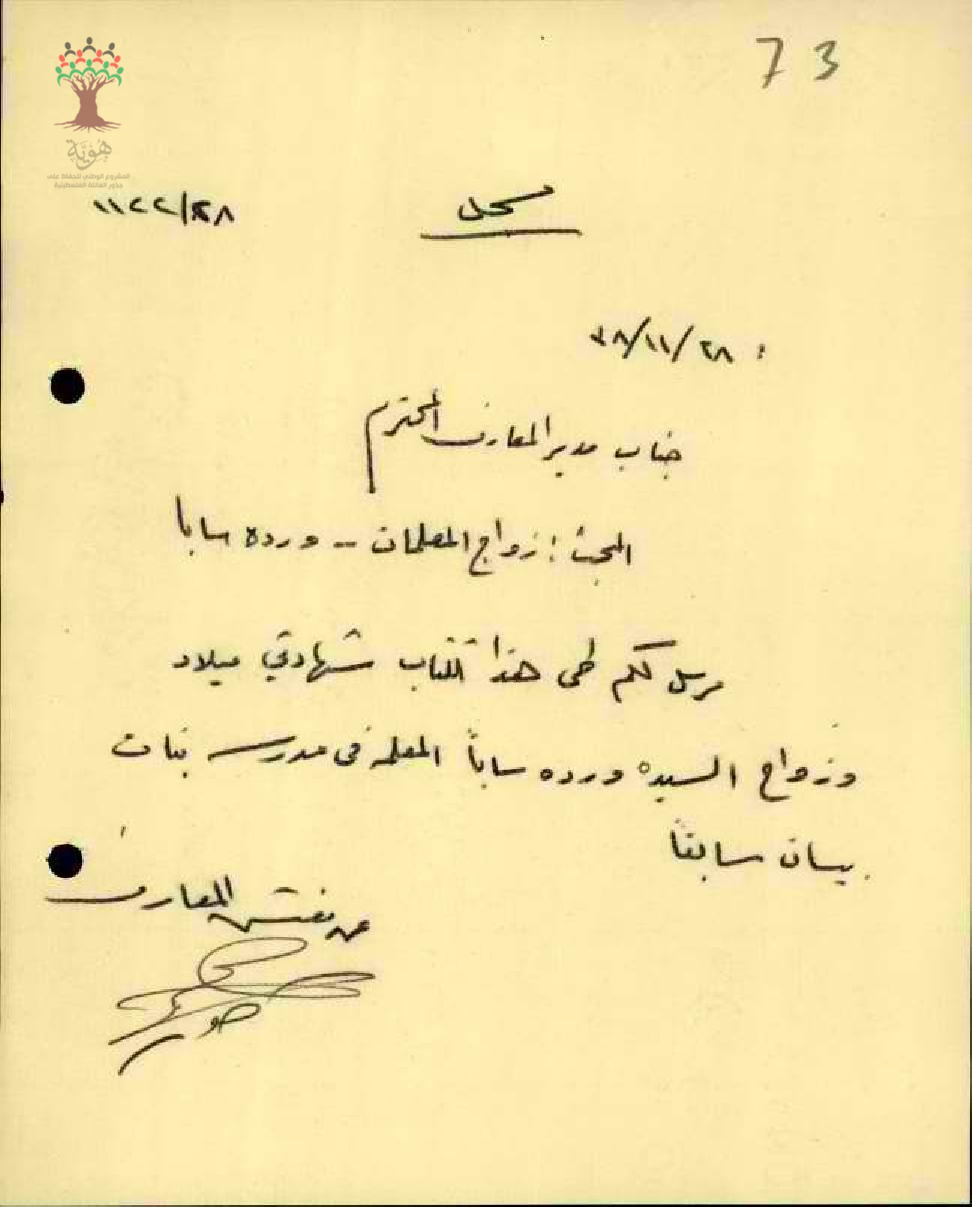 73
هُوِيَّة
المشروع الوطني للحفاظ على
جذور العائلة الفلسطينية
مسجل
١١٢٢/٢٨
٢٨/١١/٣٨ :
جناب مدير المعارف المحترم
المبحث : زواج المعلمات – وردة سابا
مرسل لكم طي هذا الكتاب شهادتي ميلاد
وزواج السيدة ورده سابا المعلمه في مدرسة بنات
بيسان سابقاً
عن مفتش المعارف